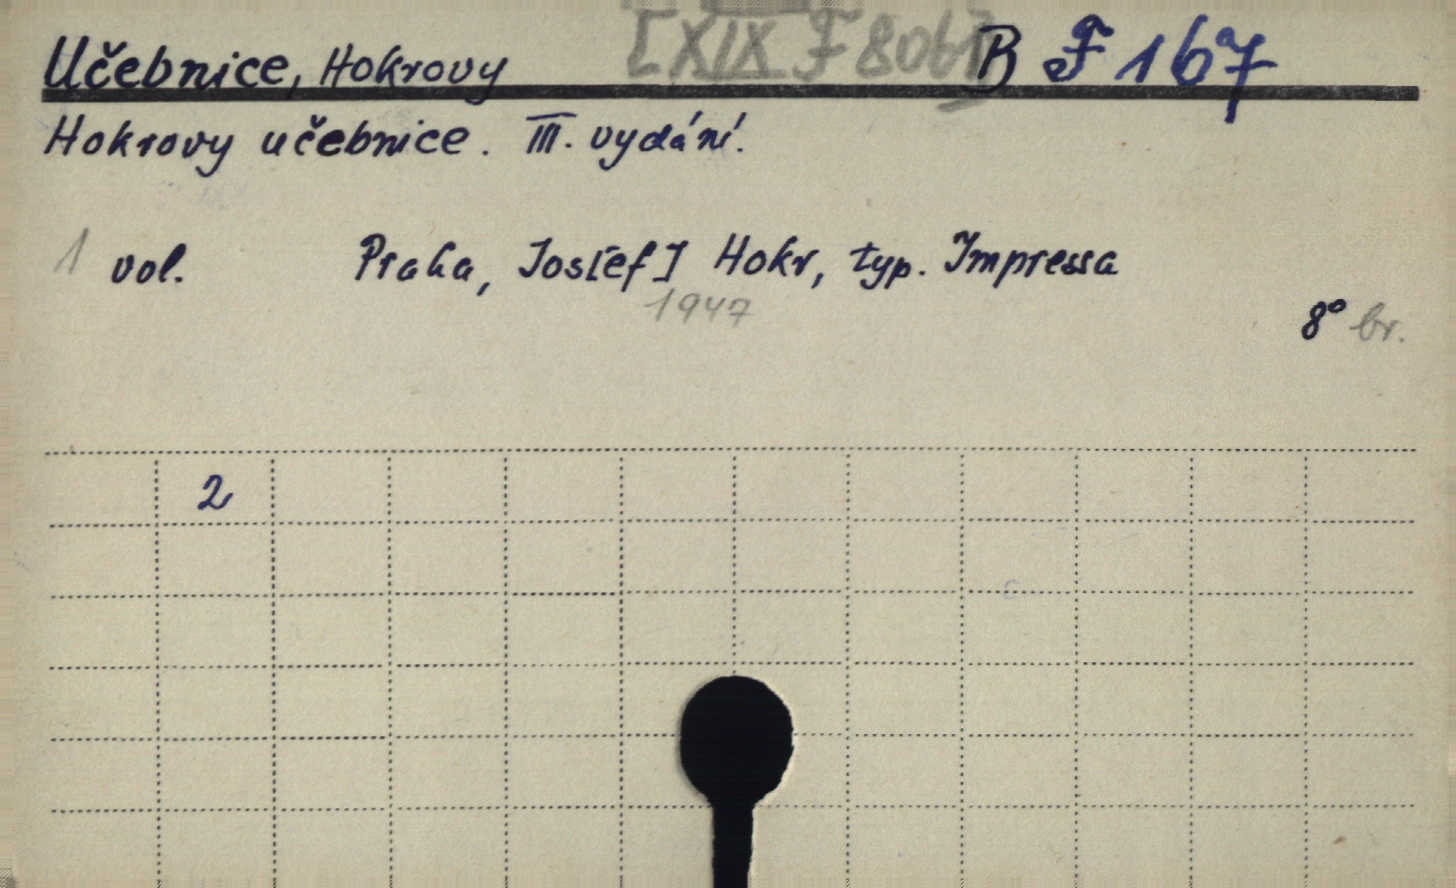 Učebnice, Hokrovy [XIX F 806] B F 167a
Hokrovy učebnice. III. vydání.
1 vol. Praha, Jos[ef] Hokr, typ. Impressa
1947
8° br.
2